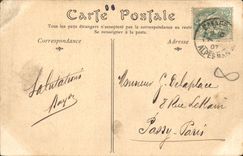 Carte Postale
Tous les pays étrangers n'acceptent pas la correspondance au recto
Se renseigner à la poste.
Correspondance
Adresse
07
ALPES MAR
Salutations
Monsieur G. Delaplace
8 Rue
Passy-Paris